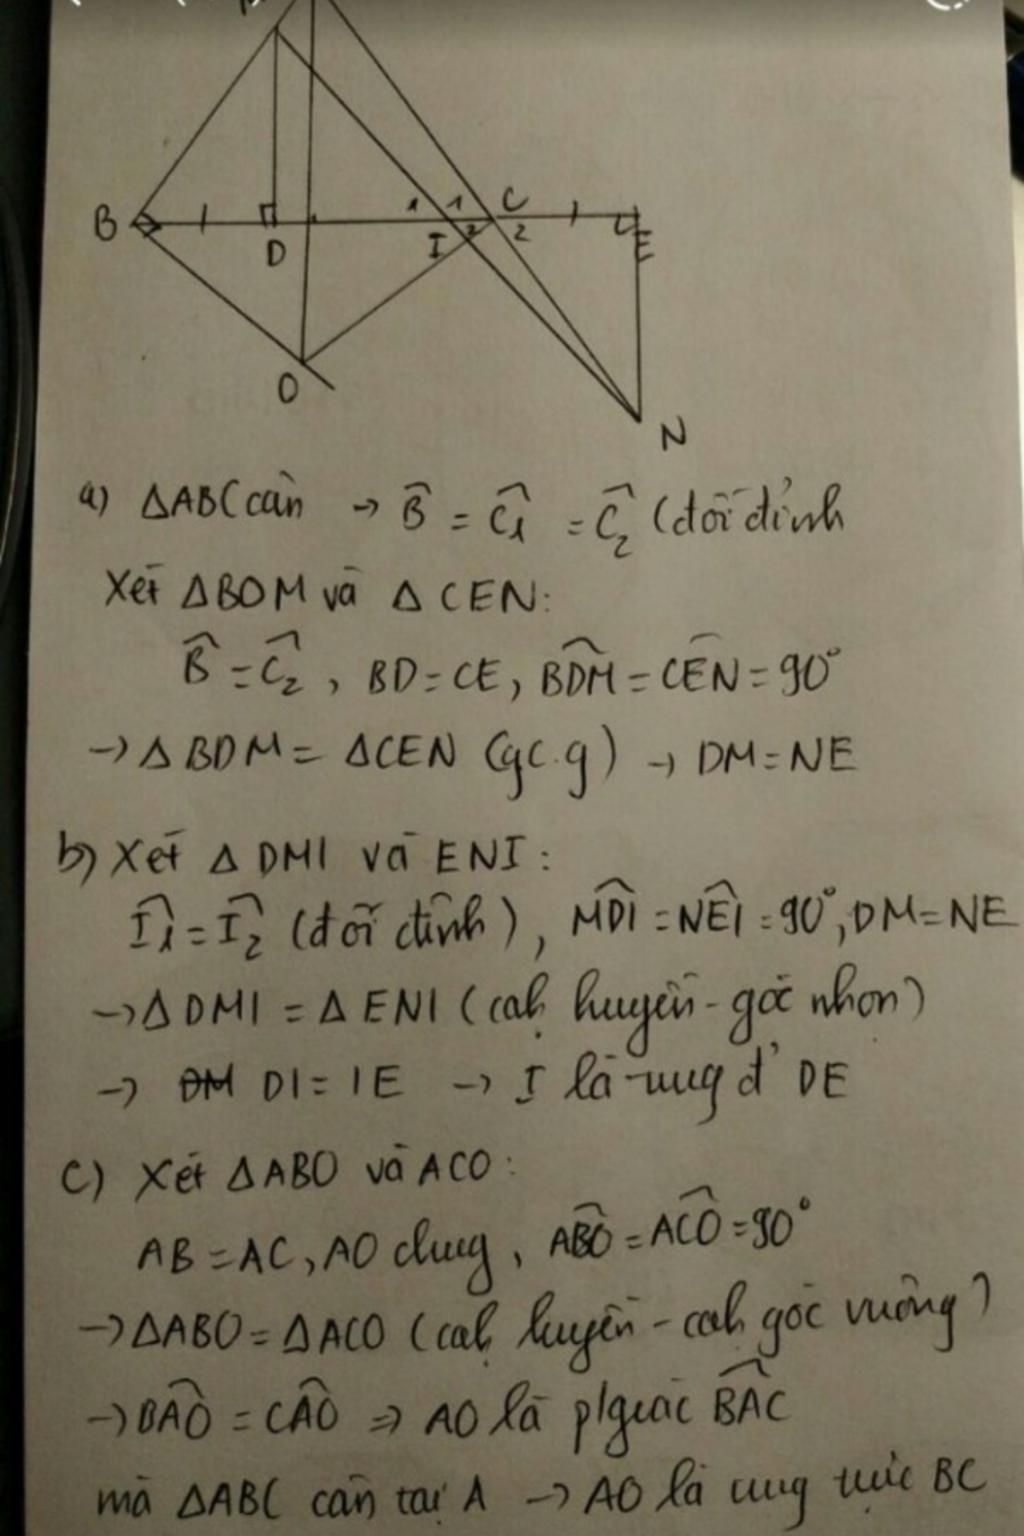 B
D
I
1
1
2
C
2
E
O
N
a) ΔABC cân → B̂ = Ĉ1 = Ĉ2 (đối đỉnh
Xét ΔBOM và Δ CEN:
B̂ = Ĉ2 , BD = CE, BDM̂ = CEN̂ = 90°
→ Δ BDM = ΔCEN (gc.g) → DM = NE
b) Xét Δ DMI và ENI :
Î1 = Î2 (đối đỉnh) , MDÎ = NEÎ = 90°, DM = NE
→ Δ DMI = Δ ENI (cah huyền - góc nhọn)
→ DI = IE → I là đ' DE
c) Xét ΔABO và ACO :
AB = AC, AO chung , ABÔ = ACÔ = 90°
→ ΔABO = ΔACO (cah huyền - cah góc vuông)
→ BAÔ = CAÔ ⇒ AO là p/giác BAĈ
mà ΔABC cân tại A → AO là trực BC